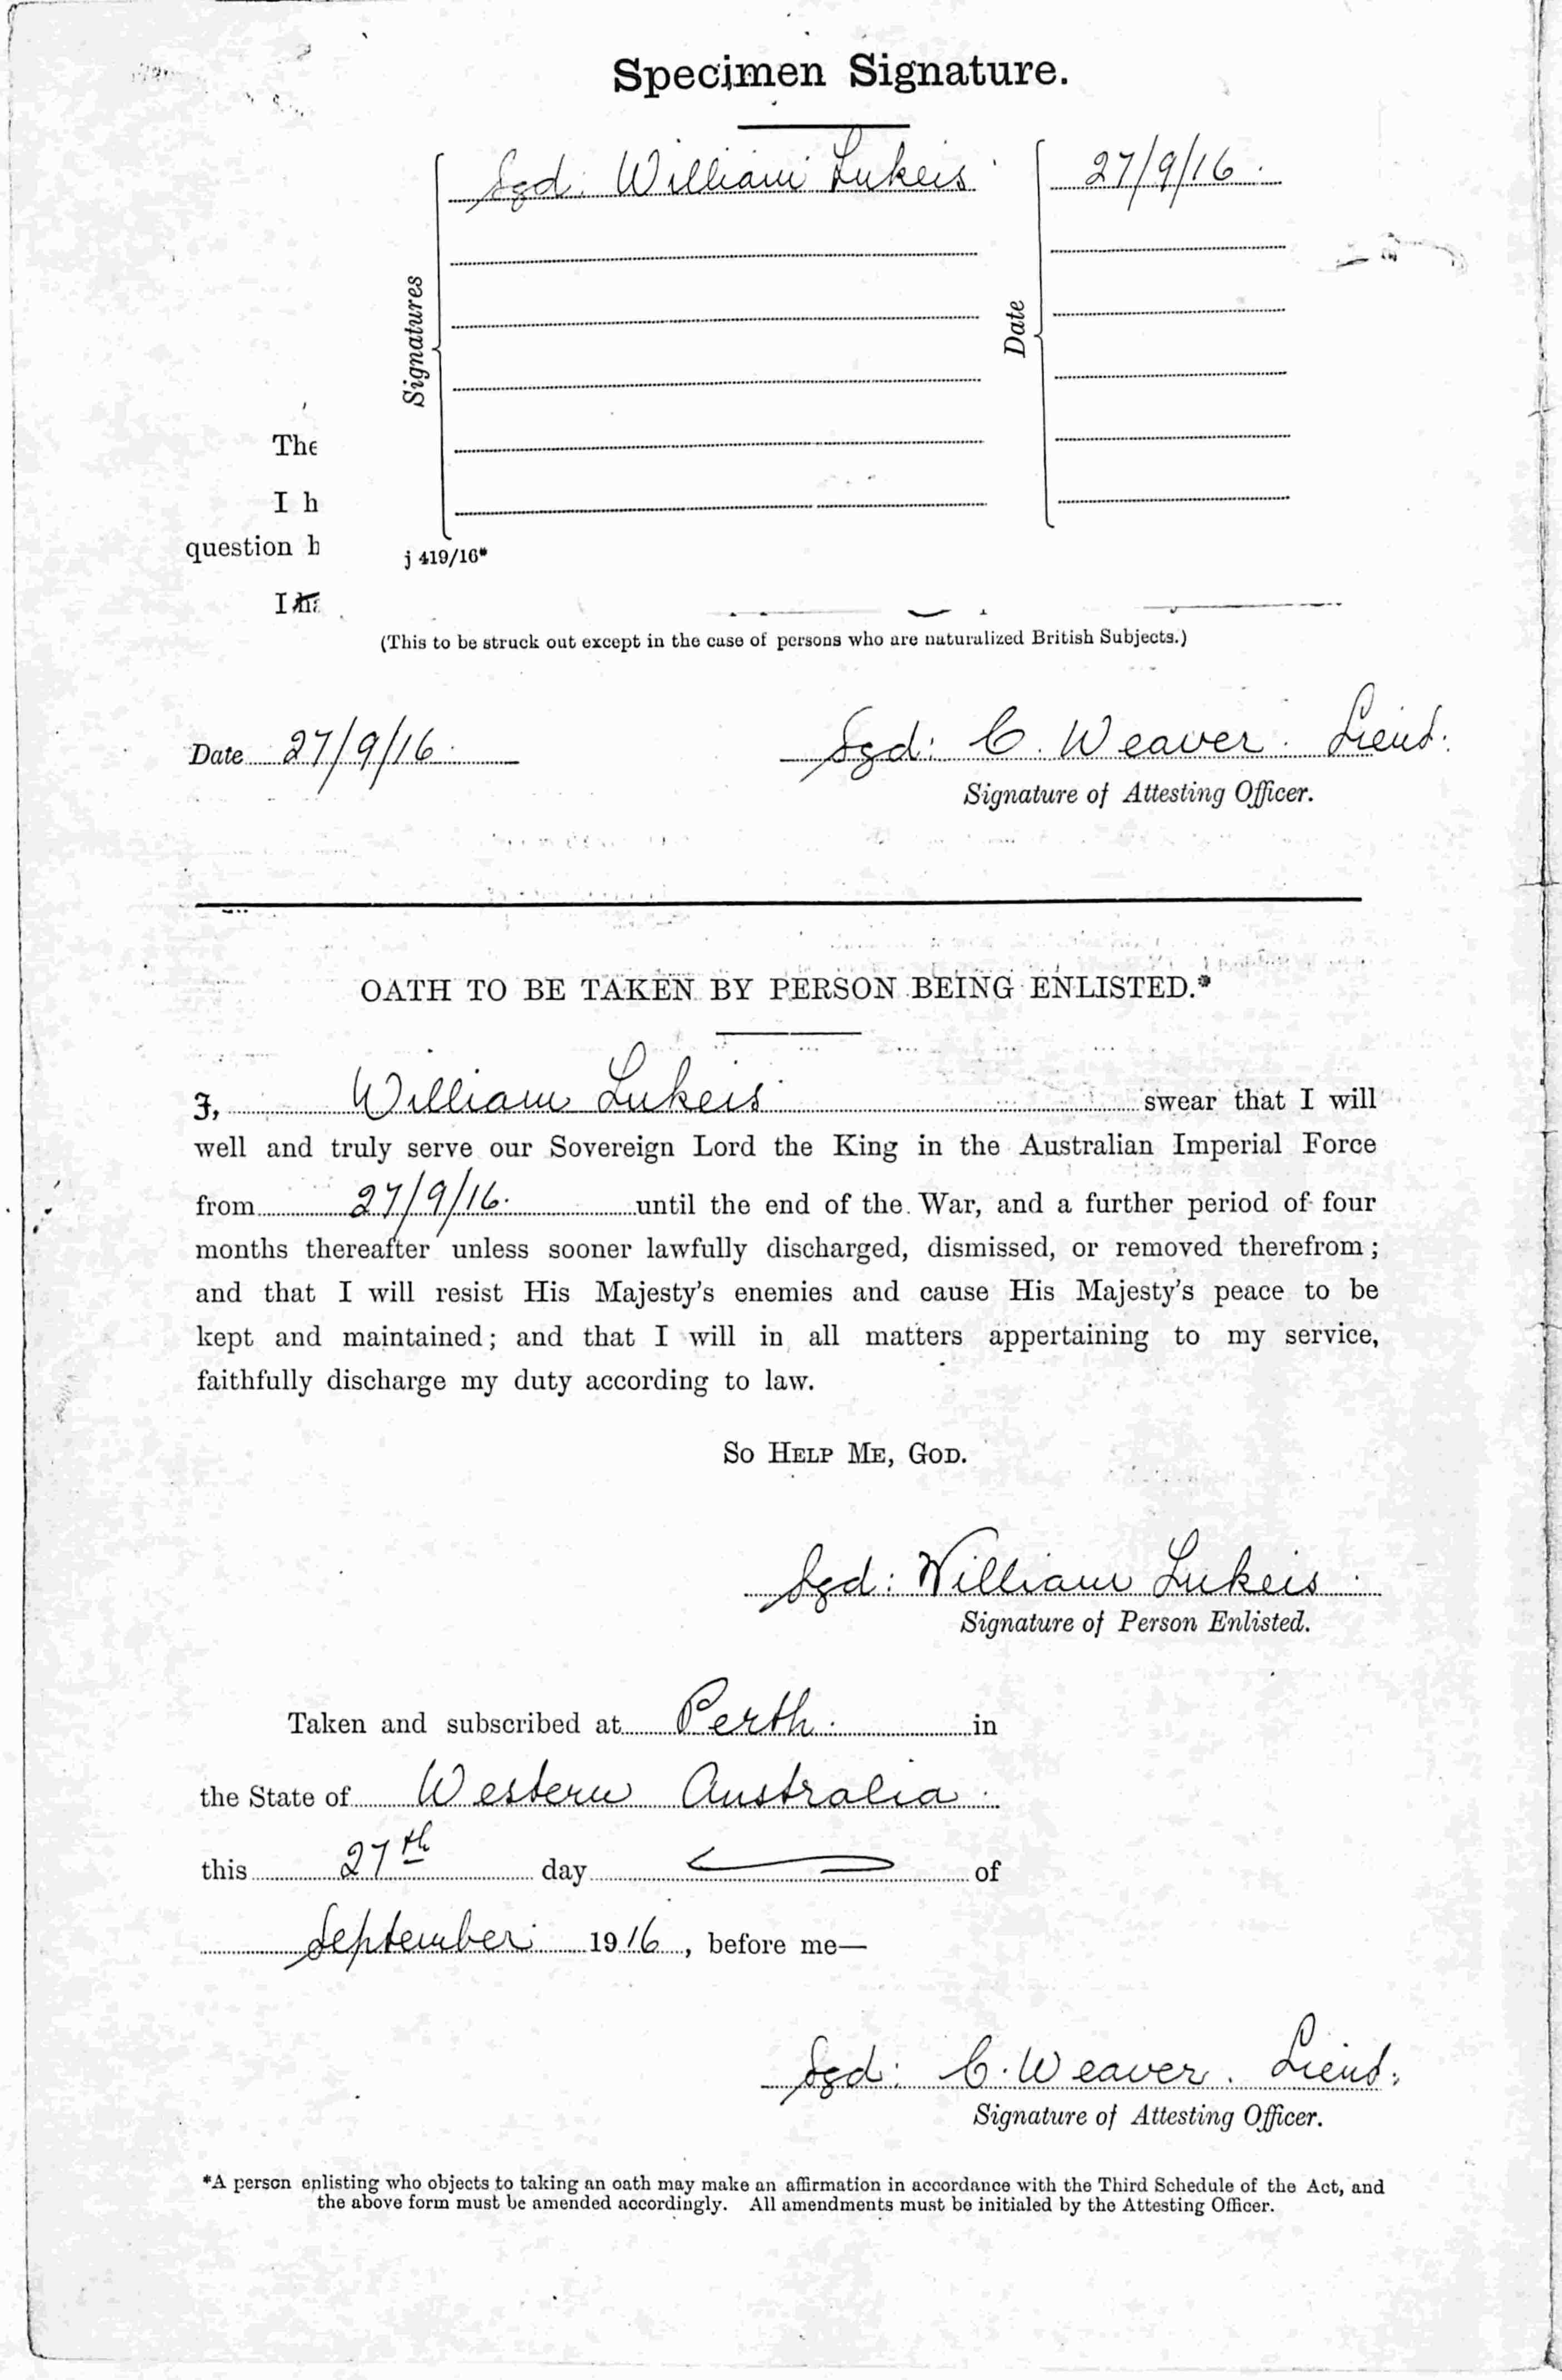 Specimen Signature.
Signatures
Sgd: William Lukeis
Date
27/9/16.
The
I h
question h
j 419/16*
I ha
(This to be struck out except in the case of persons who are naturalized British Subjects.)
Date 27/9/16.
Sgd: C. Weaver. Lieut.
Signature of Attesting Officer.
OATH TO BE TAKEN BY PERSON BEING ENLISTED.*
I, William Lukeis swear that I will
well and truly serve our Sovereign Lord the King in the Australian Imperial Force
from 27/9/16. until the end of the War, and a further period of four
months thereafter unless sooner lawfully discharged, dismissed, or removed therefrom;
and that I will resist His Majesty's enemies and cause His Majesty's peace to be
kept and maintained; and that I will in all matters appertaining to my service,
faithfully discharge my duty according to law.
SO HELP ME, GOD.
Sgd: William Lukeis.
Signature of Person Enlisted.
Taken and subscribed at Perth. in
the State of Western Australia.
this 27th day of
September 1916, before me—
Sgd: C. Weaver. Lieut.
Signature of Attesting Officer.
*A person enlisting who objects to taking an oath may make an affirmation in accordance with the Third Schedule of the Act, and
the above form must be amended accordingly. All amendments must be initialed by the Attesting Officer.